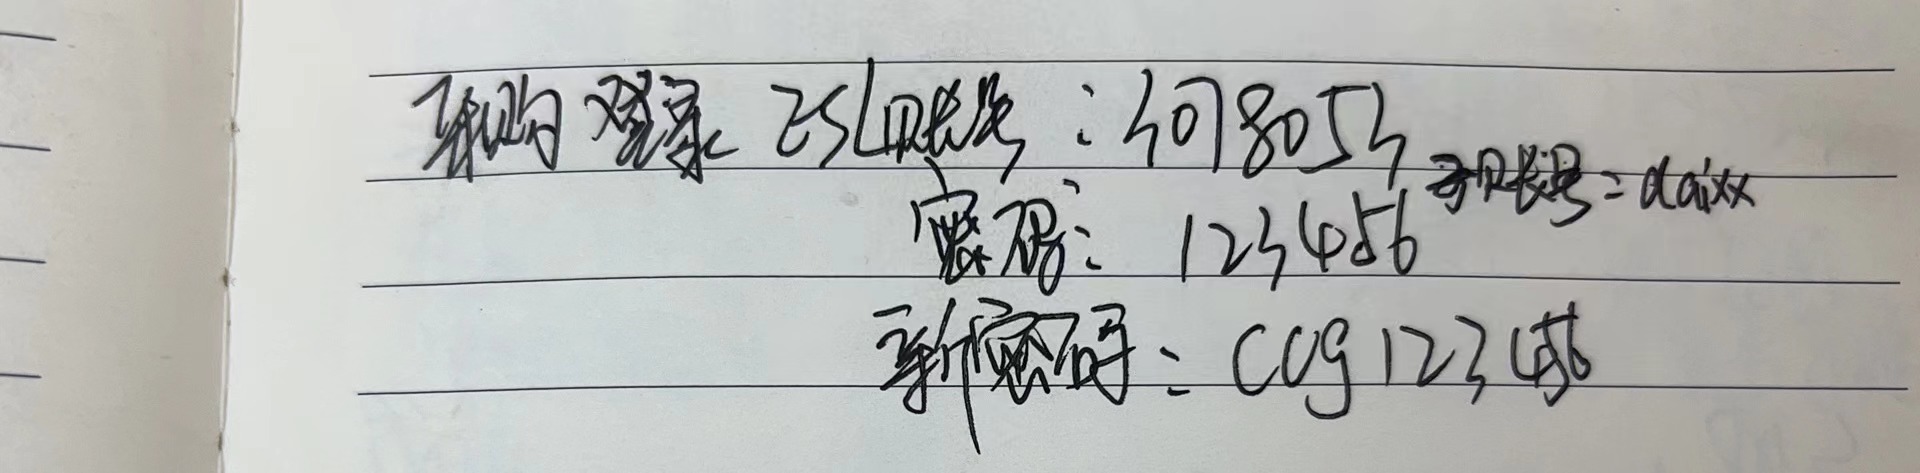 采购登录 ESL账号:3078053
子账号:daixx
密码:123456
新密码:ccg123456